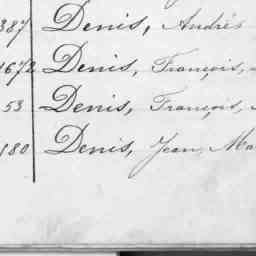 387 Denis, André
1672 Denis, François,
53 Denis, François,
180 Denis, Jean, Ma